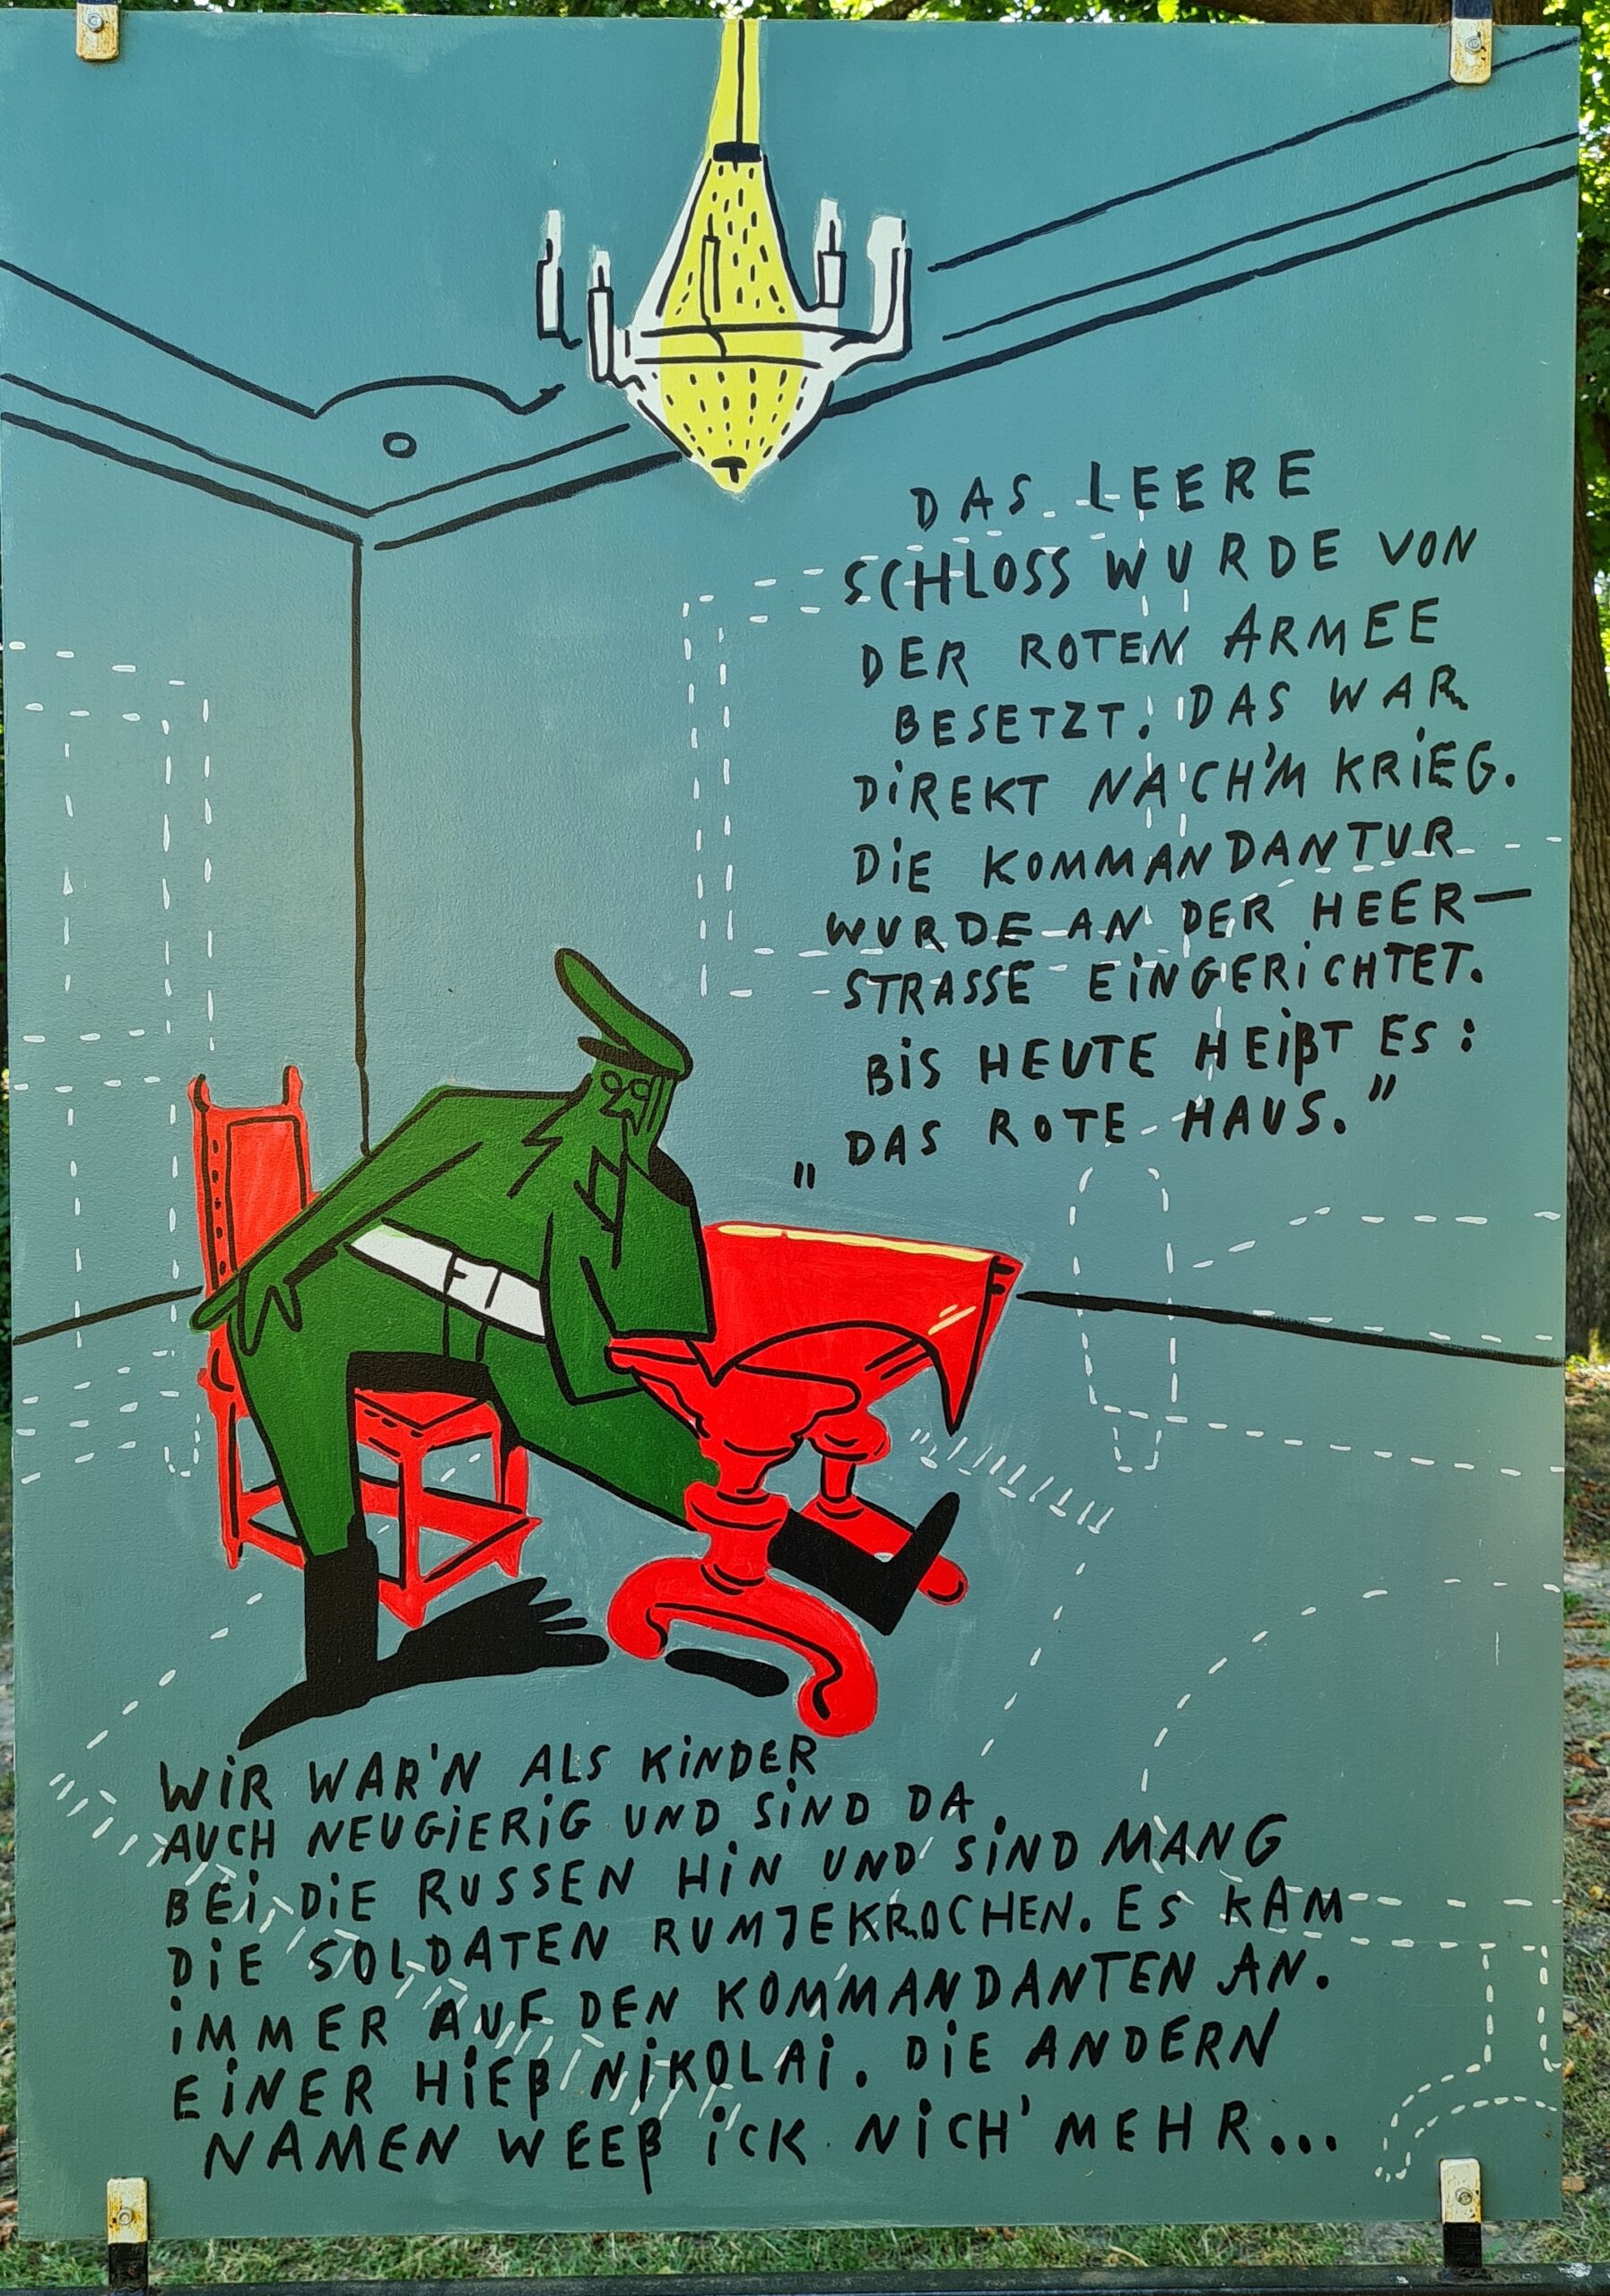 DAS LEERE
SCHLOSS WURDE VON
DER ROTEN ARMEE
BESETZT. DAS WAR
DiREKT NACH'M KRiEG.
DiE KOMMANDANTUR
WURDE AN DER HEER-
STRASSE EiNGERiCHTET.
BiS HEUTE HEißT ES:
„DAS ROTE HAUS.”
WiR WAR'N ALS KiNDER
AUCH NEUGiERiG UND SiND DA
BEi DiE RUSSEN HiN UND SiND MANG
DiE SOLDATEN RUMJEKROCHEN. ES KAM
iMMER AUF DEN KOMMANDANTEN AN.
EiNER HiEß NiKOLAi. DiE ANDERN
NAMEN WEEß iCK NiCH' MEHR...